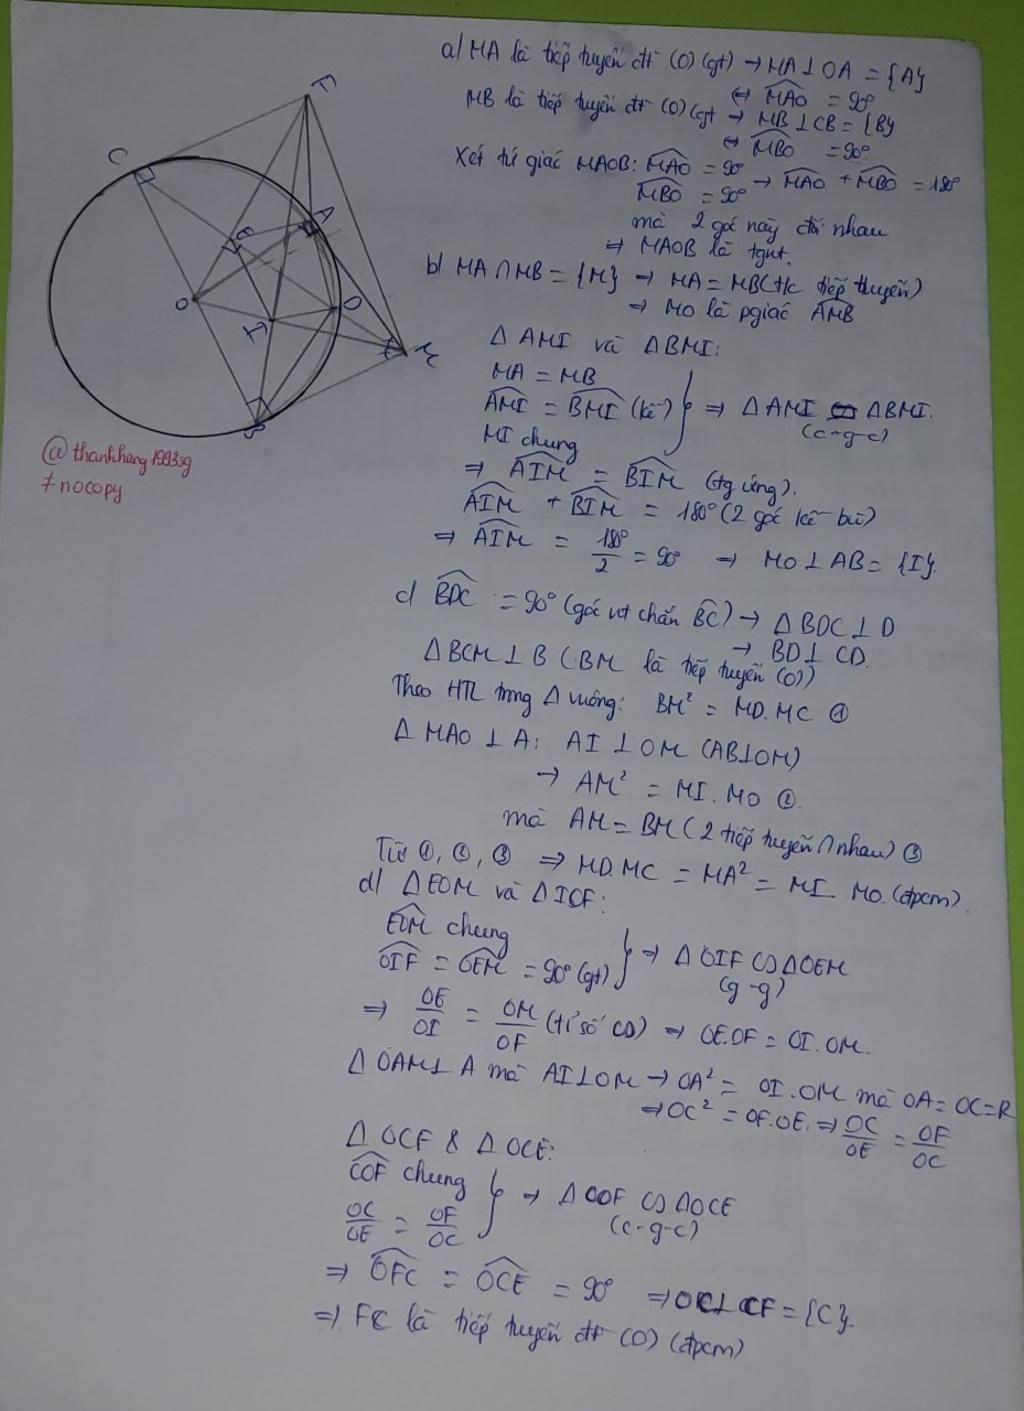 a/ MA là tiếp tuyến đt (O) (gt) → MA ⊥ OA = {A}
⇔ MAO = 90°
MB là tiếp tuyến đt (O) (gt → MB ⊥ CB = {B}
⇔ MBO = 90°
Xét tứ giác MAOB: MAO = 90° → MAO + MBO = 180°
MBO = 90°
mà 2 góc này đối nhau
⇒ MAOB là tgnt.
b/ MA ∩ MB = {M} → MA = MB (t/c tiếp tuyến)
→ MO là pgiác AMB
Δ AMI và ΔBMI:
MA = MB
AMI = BMI (kề) } ⇒ Δ AMI = ΔBMI.
MI chung (c-g-c)
⇒ AIM = BIM (tg ứng).
AIM + BIM = 180° (2 góc kề bù)
⇒ AIM = 180°/2 = 90° ⇒ MO ⊥ AB = {I}.
c/ BDC = 90° (góc nt chắn BC) → Δ BDC ⊥ D
→ BD ⊥ CD.
Δ BCM ⊥ B (BM là tiếp tuyến (O))
Theo HTL trong Δ vuông: BM² = MD.MC ①
Δ MAO ⊥ A: AI ⊥ OM (AB⊥OM)
→ AM² = MI.MO ②.
mà AM = BM (2 tiếp tuyến ∩ nhau) ③
Từ ①, ②, ③ ⇒ MD.MC = MA² = MI. MO. (đpcm).
d/ ΔEOM và ΔIOF:
EOM chung
OIF = OEM = 90° (gt) } → Δ OIF ∽ ΔOEM
(g-g)
⇒ OE/OI = OM/OF (tỉ số ∽) ⇒ OE.OF = OI.OM.
Δ OAM ⊥ A mà AI⊥OM → OA² = OI.OM mà OA = OC = R
⇒ OC² = OF.OE. ⇒ OC/OE = OF/OC
Δ OCF & Δ OCE:
COF chung
OC/OE = OF/OC } ⇒ Δ COF ∽ ΔOCE
(c-g-c)
⇒ OFC = OCE = 90° ⇒ OC⊥CF = {C}.
⇒ FC là tiếp tuyến đt (O) (đpcm)
F
C
A
E
O
D
I
M
B
@thanhhang1993sg
#nocopy